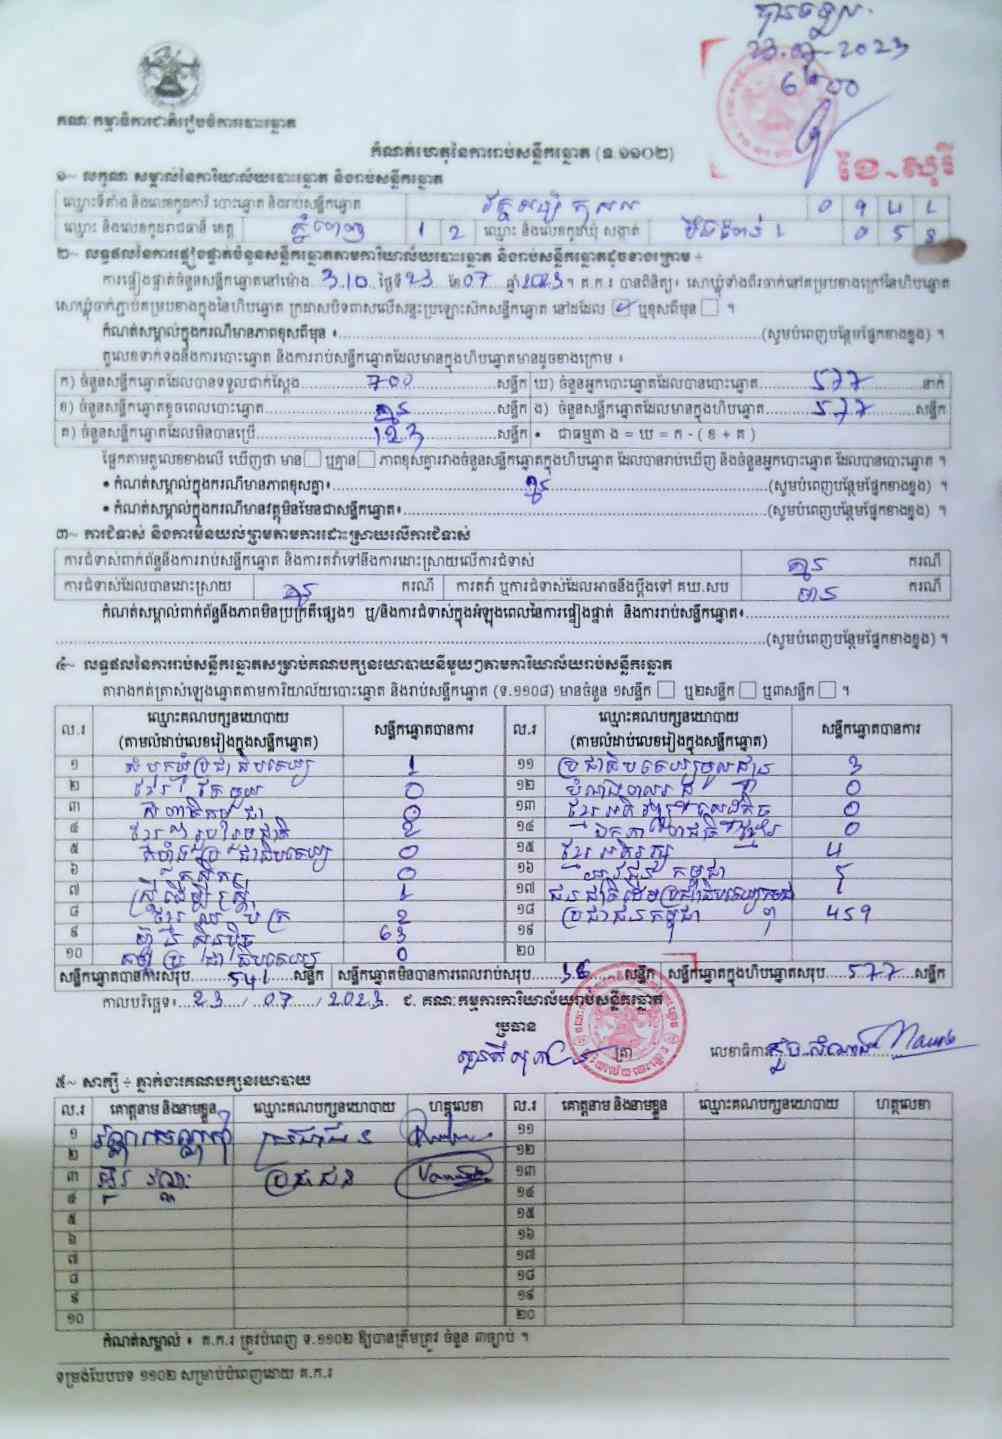 23.07-2023
គណៈកម្មាធិការជាតិរៀបចំការបោះឆ្នោត
កំណត់ហេតុនៃការរាប់សន្លឹកឆ្នោត (ទ.១១០២)
ខៃ~សុរី
១~ លក្ខណៈសម្គាល់នៃការិយាល័យបោះឆ្នោត និងរាប់សន្លឹកឆ្នោត
ឈ្មោះទីតាំង និងលេខកូដការិ. បោះឆ្នោត និងរាប់សន្លឹកឆ្នោត
ឈ្មោះ និងលេខកូដរាជធានី ខេត្ត ភ្នំពេញ 1 2 ឈ្មោះ និងលេខកូដឃុំ សង្កាត់
២~ លទ្ធផលនៃការផ្ទៀងផ្ទាត់ចំនួនសន្លឹកឆ្នោតតាមការិយាល័យបោះឆ្នោត និងរាប់សន្លឹកឆ្នោតដូចខាងក្រោម ÷
ការផ្ទៀងផ្ទាត់ចំនួនសន្លឹកឆ្នោតនៅម៉ោង 3.10 ថ្ងៃទី 23 ខែ 07 ឆ្នាំ 2023 ។ គ.ក.រ បានពិនិត្យ៖ សោឃ្លុំទាំងពីរចាក់នៅគម្របខាងក្រៅនៃហិបឆ្នោត
សោឃ្លុំចាក់ភ្ជាប់គម្របខាងក្នុងនៃហិបឆ្នោត ក្រដាសបិទពាសលើសន្ទះប្រឡោះស៊កសន្លឹកឆ្នោត នៅដដែល ឬខុសពីមុន ។
កំណត់សម្គាល់ក្នុងករណីមានភាពខុសពីមុន ៖ (សូមបំពេញបន្ថែមផ្នែកខាងខ្នង) ។
តួលេខទាក់ទងនឹងការបោះឆ្នោត និងការរាប់សន្លឹកឆ្នោតដែលមានក្នុងហិបឆ្នោតមានដូចខាងក្រោម ៖
ក) ចំនួនសន្លឹកឆ្នោតដែលបានទទួលជាក់ស្តែង 700 សន្លឹក ឃ) ចំនួនអ្នកបោះឆ្នោតដែលបានបោះឆ្នោត 577 នាក់
ខ) ចំនួនសន្លឹកឆ្នោតខូចពេលបោះឆ្នោត គ្មាន សន្លឹក ង) ចំនួនសន្លឹកឆ្នោតដែលមានក្នុងហិបឆ្នោត 577 សន្លឹក
គ) ចំនួនសន្លឹកឆ្នោតដែលមិនបានប្រើ 123 សន្លឹក • ជាធម្មតា ង = ឃ = ក - ( ខ + គ )
ផ្អែកតាមតួលេខខាងលើ ឃើញថា មាន ឬគ្មាន ភាពខុសគ្នារវាងចំនួនសន្លឹកឆ្នោតក្នុងហិបឆ្នោត ដែលបានរាប់ឃើញ និងចំនួនអ្នកបោះឆ្នោត ដែលបានបោះឆ្នោត ។
• កំណត់សម្គាល់ក្នុងករណីមានភាពខុសគ្នា៖ គ្មាន (សូមបំពេញបន្ថែមផ្នែកខាងខ្នង) ។
• កំណត់សម្គាល់ក្នុងករណីមានវត្ថុមិនមែនជាសន្លឹកឆ្នោត៖ (សូមបំពេញបន្ថែមផ្នែកខាងខ្នង) ។
៣~ ការជំទាស់ និងការមិនយល់ព្រមតាមការដោះស្រាយលើការជំទាស់
ការជំទាស់ពាក់ព័ន្ធនឹងការរាប់សន្លឹកឆ្នោត និងការតវ៉ាទៅនឹងការដោះស្រាយលើការជំទាស់ គ្មាន ករណី
ការជំទាស់ដែលបានដោះស្រាយ គ្មាន ករណី ការតវ៉ា ឬការជំទាស់ដែលអាចនឹងប្តឹងទៅ គឃ.សប ករណី
កំណត់សម្គាល់ពាក់ព័ន្ធនឹងភាពមិនប្រក្រតីផ្សេងៗ ឬ/និងការជំទាស់ក្នុងអំឡុងពេលនៃការផ្ទៀងផ្ទាត់ និងការរាប់សន្លឹកឆ្នោត៖
(សូមបំពេញបន្ថែមផ្នែកខាងខ្នង) ។
៤~ លទ្ធផលនៃការរាប់សន្លឹកឆ្នោតសម្រាប់គណបក្សនយោបាយនីមួយៗតាមការិយាល័យរាប់សន្លឹកឆ្នោត
តារាងកត់ត្រាសំឡេងឆ្នោតតាមការិយាល័យបោះឆ្នោត និងរាប់សន្លឹកឆ្នោត (ទ.១១០៨) មានចំនួន ១សន្លឹក ឬ២សន្លឹក ឬ៣សន្លឹក ។
ល.រ ឈ្មោះគណបក្សនយោបាយ (តាមលំដាប់លេខរៀងក្នុងសន្លឹកឆ្នោត) សន្លឹកឆ្នោតបានការ ល.រ ឈ្មោះគណបក្សនយោបាយ (តាមលំដាប់លេខរៀងក្នុងសន្លឹកឆ្នោត) សន្លឹកឆ្នោតបានការ
១ សំបុកឃ្មុំប្រជាធិបតេយ្យ 1 ១១ 3
២ ខ្មែររួបរួម 0 ១២ 0
៣ 0 ១៣ ខ្មែរអភិវឌ្ឍន៍សេដ្ឋកិច្ច 0
៤ 2 ១៤ ឯកភាពជាតិខ្មែរ 0
៥ 0 ១៥ ខ្មែរអភិរក្ស 4
៦ កសិករ 0 ១៦ យុវជនកម្ពុជា
៧ ស្ត្រីដើម្បីស្ត្រី 1 ១៧ ជនជាតិដើមប្រជាធិបតេយ្យកម្ពុជា
៨ 2 ១៨ ប្រជាជនកម្ពុជា 459
៩ ហ៊្វុនស៊ិនប៉ិច 63 ១៩
១០ 0 ២០
សន្លឹកឆ្នោតបានការសរុប 541 សន្លឹក សន្លឹកឆ្នោតមិនបានការពេលរាប់សរុប 36 សន្លឹក សន្លឹកឆ្នោតក្នុងហិបឆ្នោតសរុប 577 សន្លឹក
កាលបរិច្ឆេទ៖ 23 / 07 / 2023 ជ. គណៈកម្មការការិយាល័យរាប់សន្លឹកឆ្នោត
ប្រធាន
ត្រា លេខាធិការ
៥~ សាក្សី ÷ ភ្នាក់ងារគណបក្សនយោបាយ
ល.រ គោត្តនាម និងនាមខ្លួន ឈ្មោះគណបក្សនយោបាយ ហត្ថលេខា ល.រ គោត្តនាម និងនាមខ្លួន ឈ្មោះគណបក្សនយោបាយ ហត្ថលេខា
១ ប្រជាជន ១១
២ ១២
៣ ប្រជាជន ១៣
៤ ១៤
៥ ១៥
៦ ១៦
៧ ១៧
៨ ១៨
៩ ១៩
១០ ២០
កំណត់សម្គាល់ ៖ គ.ក.រ ត្រូវបំពេញ ទ.១១០២ ឱ្យបានត្រឹមត្រូវ ចំនួន ៣ច្បាប់ ។
ទម្រង់បែបបទ ១១០២ សម្រាប់បំពេញដោយ គ.ក.រ